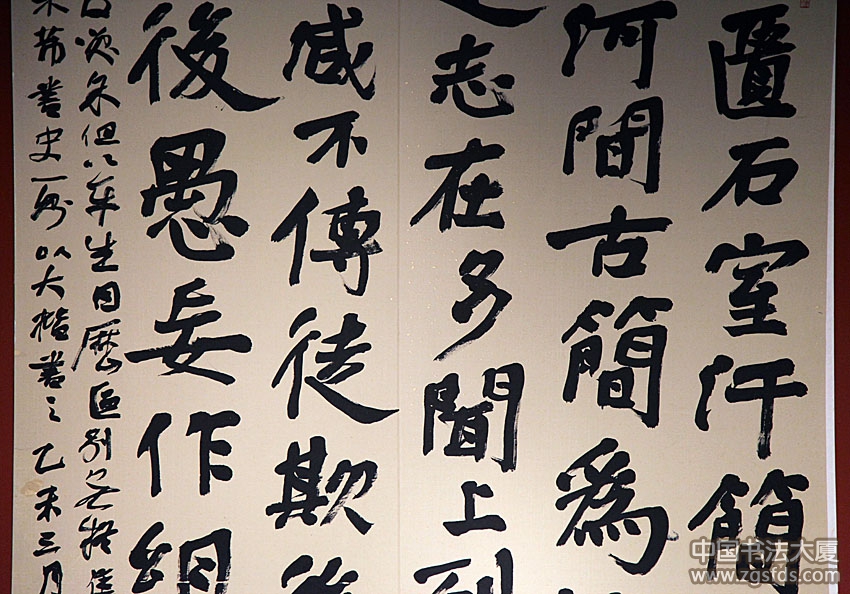 匱石室汗簡
河間古簡為
志在多聞上到
咸不傳徒欺後
後愚妄作組
目歷區別無
米芾書史一則以大楷書之乙未三月
中国书法大厦
www.zgsfds.com